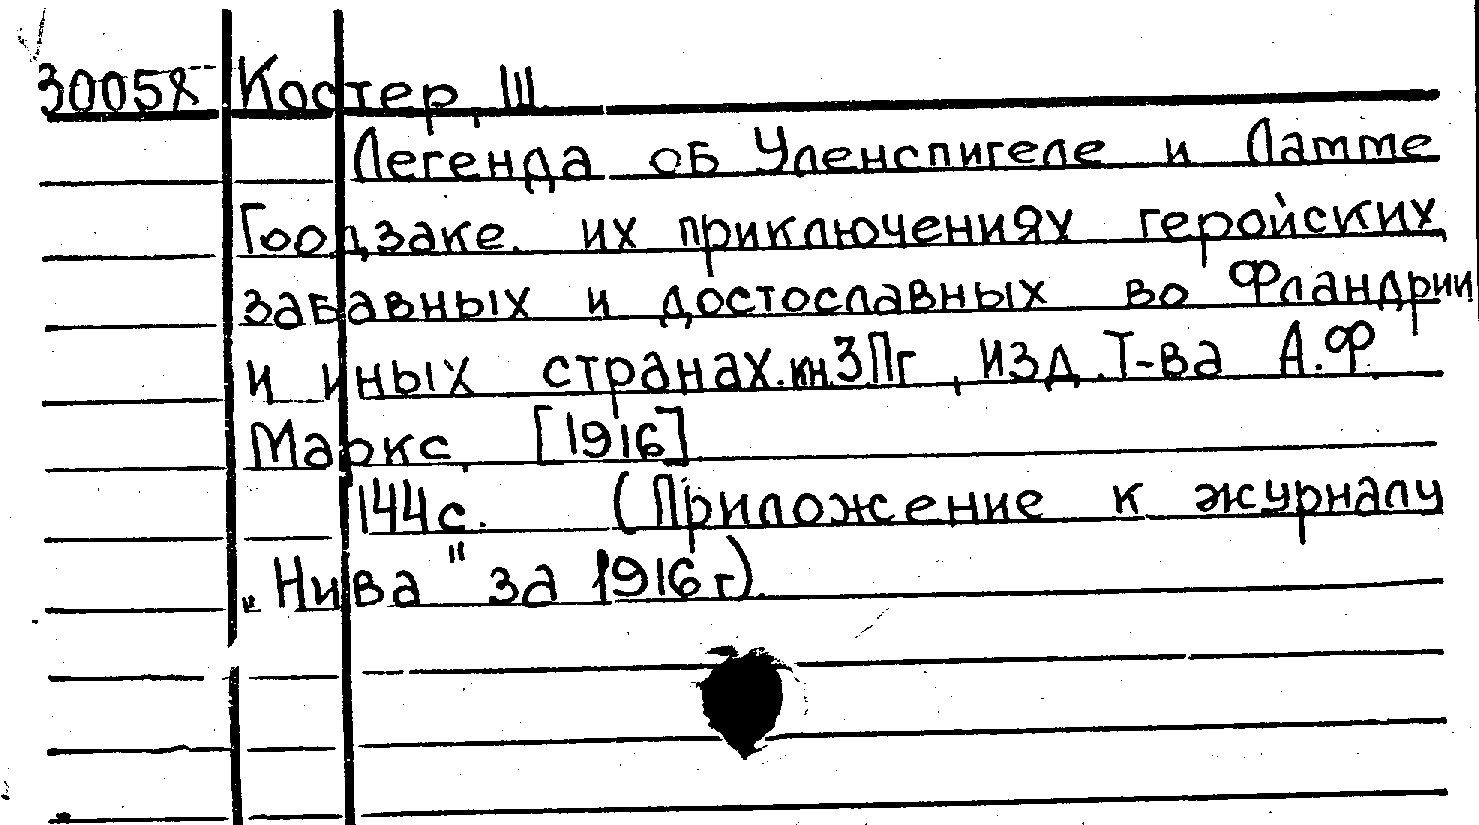 30058 Костер, Ш.
Легенда об Уленспигеле и Ламме
Гоодзаке. их приключениях геройских
забавных и достославных во Фландрии
и иных странах. кн. 3 Пг, изд. Т-ва А.Ф.
Маркс, [1916]
144с. (Приложение к журналу
"Нива" за 1916г).